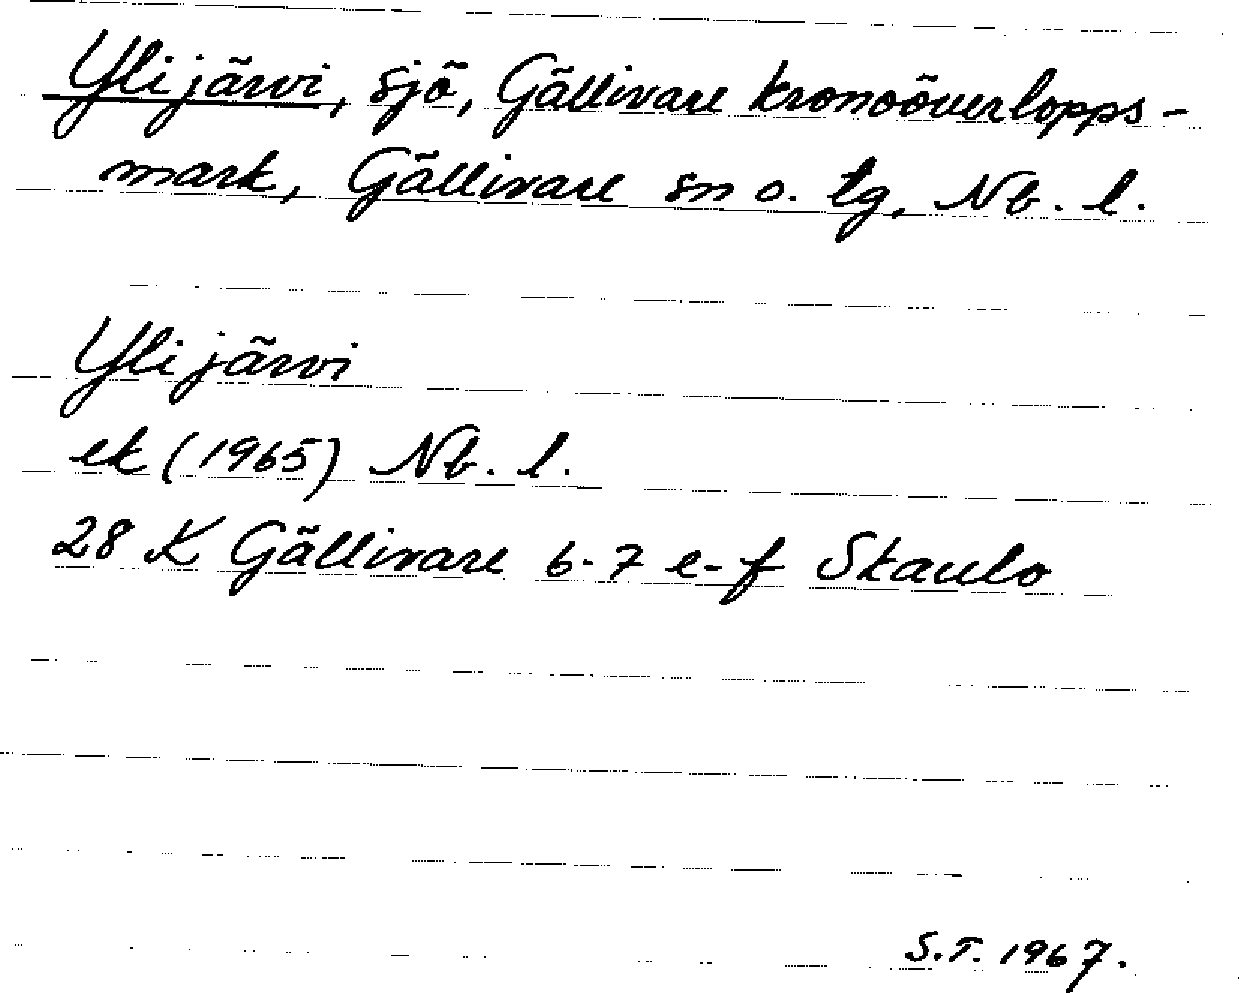 Ylijärvi, sjö, Gällivare kronoöverlopps-
mark, Gällivare sn o. tg, Nb. l.
Ylijärvi
ek (1965) Nb. l.
28 K Gällivare 6-7 e-f Skaulo
S.T. 1967.